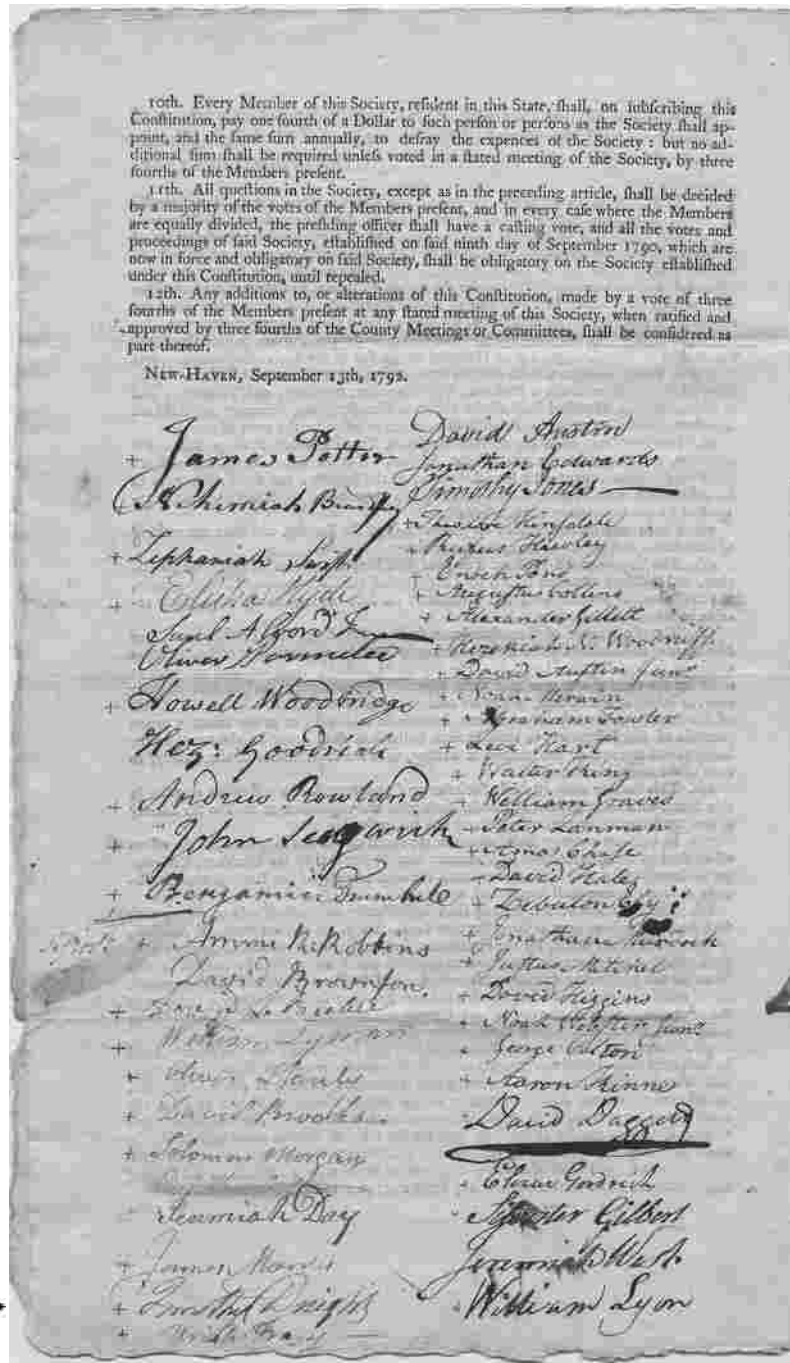 10th. Every Member of this Society, resident in this State, shall, on subscribing this
Constitution, pay one fourth of a Dollar to such person or persons as the Society shall ap-
point, and the same sum annually, to defray the expences of the Society: but no ad-
ditional sum shall be required unless voted in a stated meeting of the Society, by three
fourths of the Members present.
11th. All questions in the Society, except as in the preceding article, shall be decided
by a majority of the votes of the Members present, and in every case where the Members
are equally divided, the presiding officer shall have a casting vote, and all the votes and
proceedings of said Society, established on said ninth day of September 1790, which are
now in force and obligatory on said Society, shall be obligatory on the Society established
under this Constitution, until repealed.
12th. Any additions to, or alterations of this Constitution, made by a vote of three
fourths of the Members present at any stated meeting of this Society, when ratified and
approved by three fourths of the County Meetings or Committees, shall be considered as
part thereof.
NEW-HAVEN, September 13th, 1792.
+ James Potter
Zephaniah Swift
+ Elisha Hyde
+ Howell Woodbridge
Hez: Goodrich
+ Andrew Rowland
+ John
+ Benjamin Trumbull
+ Ammi R. Robbins
David Brownson
+ William Lyman
+ David Brooks
+ Solomon Morgan
Jeremiah Day
+ Timothy Dwight
David Austin
Jonathan Edwards
Timothy Jones
+ Rufus Hawley
+ Augustus Collins
+ Alexander Gillett
+ Hezekiah N. Woodruff
+ David Austin Junr.
+ Noah Merwin
+ Abraham Fowler
+ Levi Hart
+ Walter King
+ William Graves
+ Peter Lanman
+ Amos Chase
+ David Haley
+ Zebulon Ely
+ Jonathan
+ Justus Mitchel
+ David Higgins
+ Noah Webster Junr.
+ George Colton
+ Aaron Kinne
David Daggett
Elizur Goodrich
Sylvester Gilbert
Jeremiah West
William Lyon